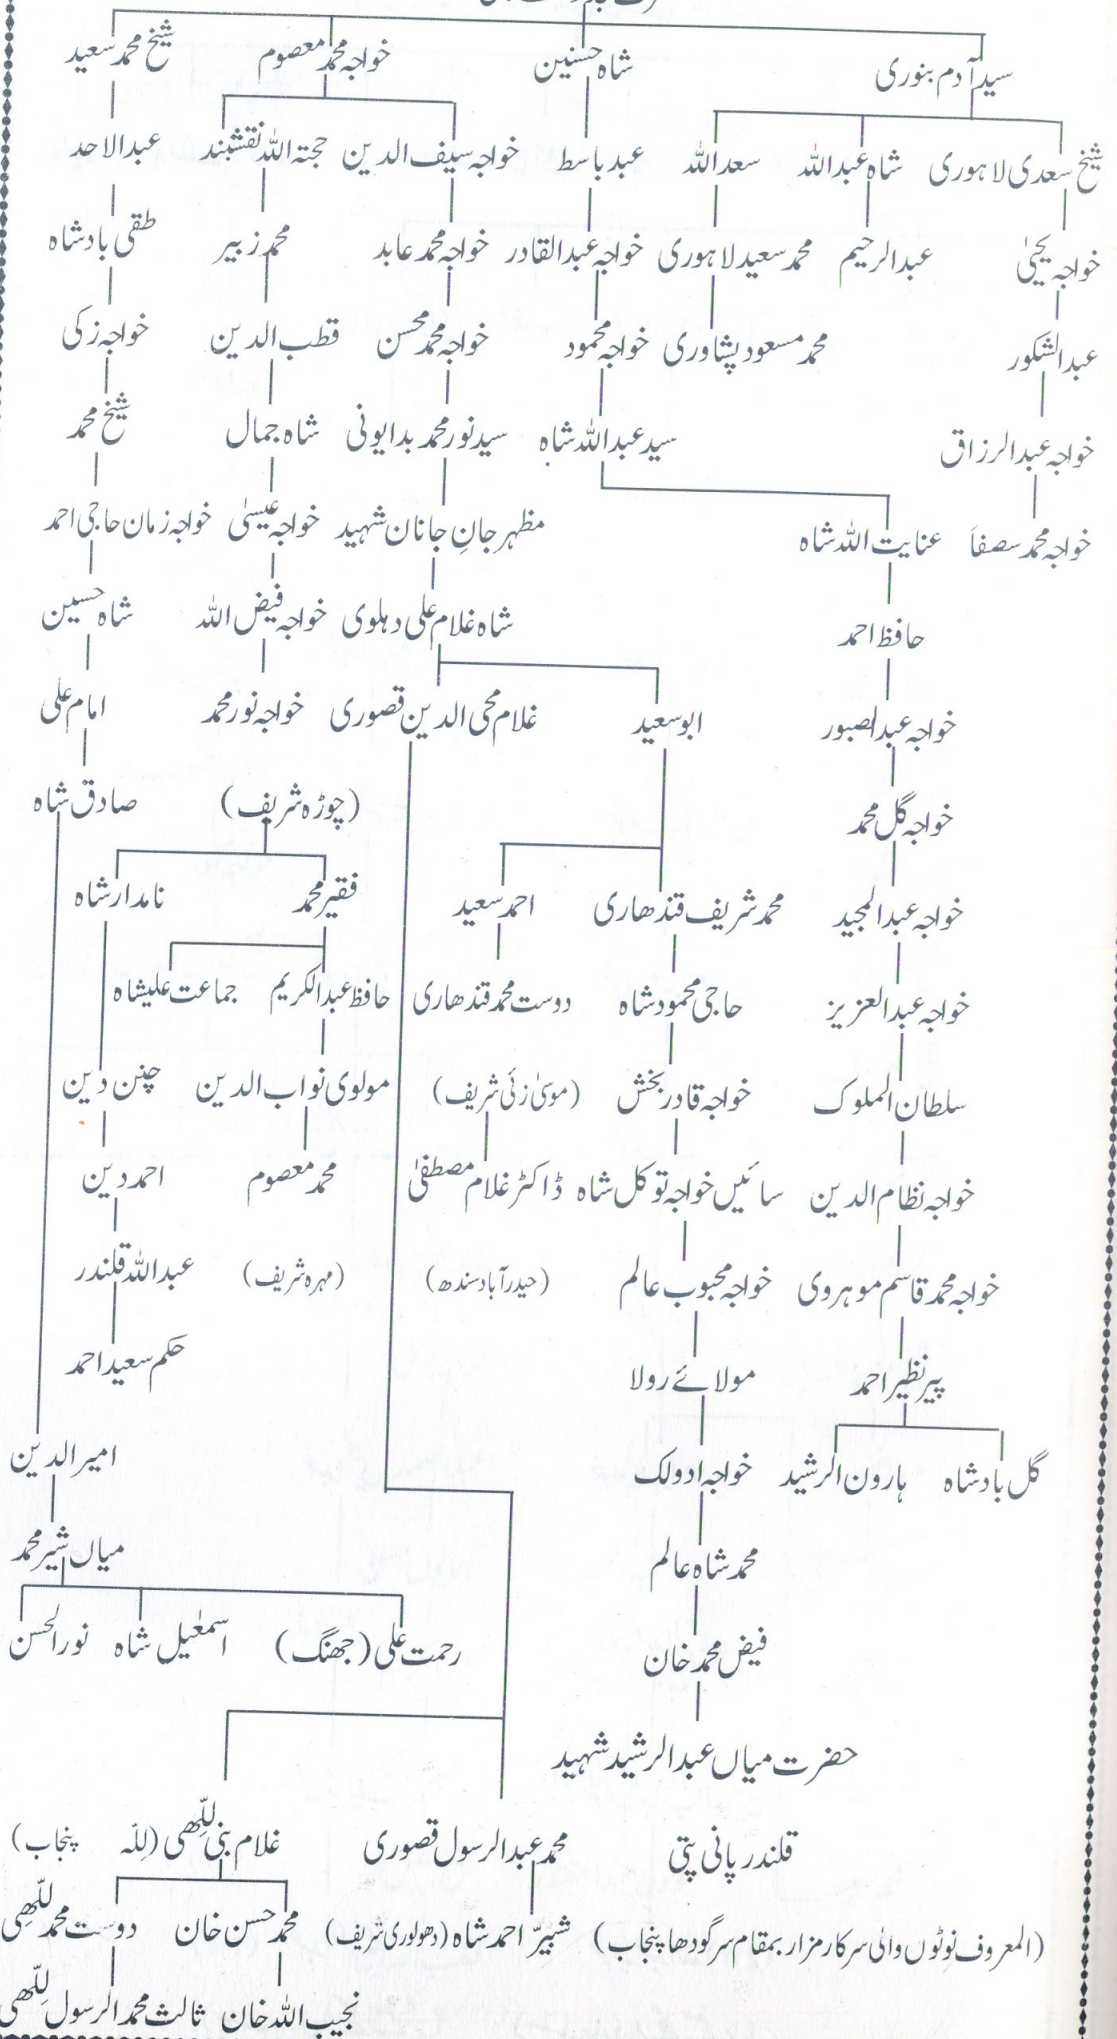 سید آدم بنوری شاہ حسنین خواجہ محمد معصوم شیخ محمد سعید
شیخ سعدی لاہوری شاہ عبداللہ سعد اللہ عبد باسط خواجہ سیف الدین حجتہ اللہ نقشبند عبدالاحد
خواجہ یحییٰ عبدالرحیم محمد سعید لاہوری خواجہ عبدالقادر خواجہ محمد عابد محمد زبیر طقی بادشاہ
عبدالشکور محمد مسعود پشاوری خواجہ محمود خواجہ محمد محسن قطب الدین خواجہ زکی
خواجہ عبدالرزاق سید عبداللہ شاہ سید نور محمد بدایونی شاہ جمال شیخ محمد
خواجہ محمد سصفاَ عنایت اللہ شاہ مظہر جانِ جانان شہید خواجہ عیسیٰ خواجہ زمان حاجی احمد
حافظ احمد شاہ غلام علی دہلوی خواجہ فیض اللہ شاہ حسین
خواجہ عبدالصبور ابو سعید غلام محی الدین قصوری خواجہ نور محمد امام علی
خواجہ گل محمد (چوڑہ شریف) صادق شاہ
خواجہ عبدالمجید محمد شریف قندھاری احمد سعید فقیر محمد نامدار شاہ
خواجہ عبدالعزیز حاجی محمود شاہ دوست محمد قندھاری حافظ عبدالکریم جماعت علیشاہ
سلطان الملوک خواجہ قادر بخش (موسیٰ زئی شریف) مولوی نواب الدین چنن دین
خواجہ نظام الدین سائیں خواجہ توکل شاہ ڈاکٹر غلام مصطفیٰ محمد معصوم احمد دین
خواجہ محمد قاسم موہروی خواجہ محبوب عالم (حیدرآباد سندھ) (مہرہ شریف) عبداللہ قلندر
پیر نظیر احمد مولائے رولا حکم سعید احمد
گل بادشاہ ہارون الرشید خواجہ ادولک امیر الدین
محمد شاہ عالم میاں شیر محمد
فیض محمد خان رحمت علی (جھنگ) اسمٰعیل شاہ نور الحسن
حضرت میاں عبدالرشید شہید
قلندر پانی پتی محمد عبدالرسول قصوری غلام بنی للّٰھی (للّٰہ پنجاب)
(المعروف نوٹوں والی سرکار مزار بمقام سرگودھا پنجاب) شبیرّ احمد شاہ (دھولوری شریف) محمد حسن خان دوست محمد للّٰھی
نجیب اللہ خان ثالث محمد الرسول للّٰھی